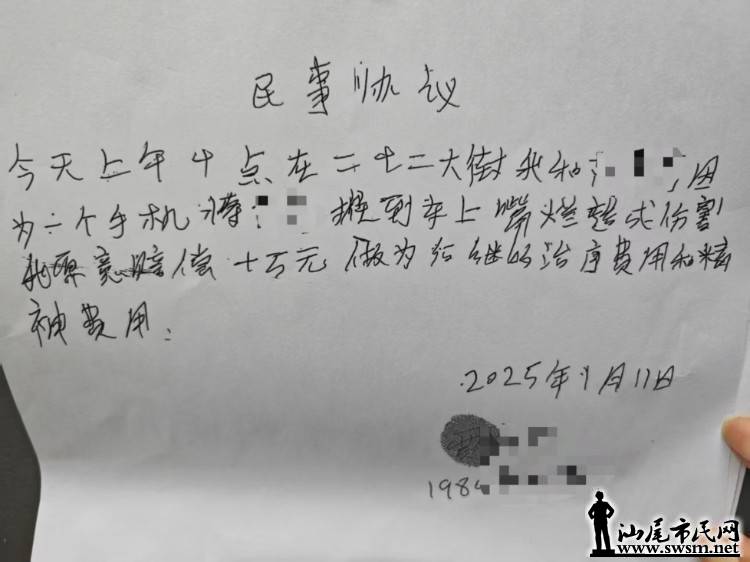 民事协议
今天上午十点在二七二大街我和
因
为一个手机将
摁到车上嘴烂造成伤害
我愿意赔偿十万元做为后继的治疗费用和精
神费用.
2025年9月11日
198
汕尾市民网
www.swsm.net